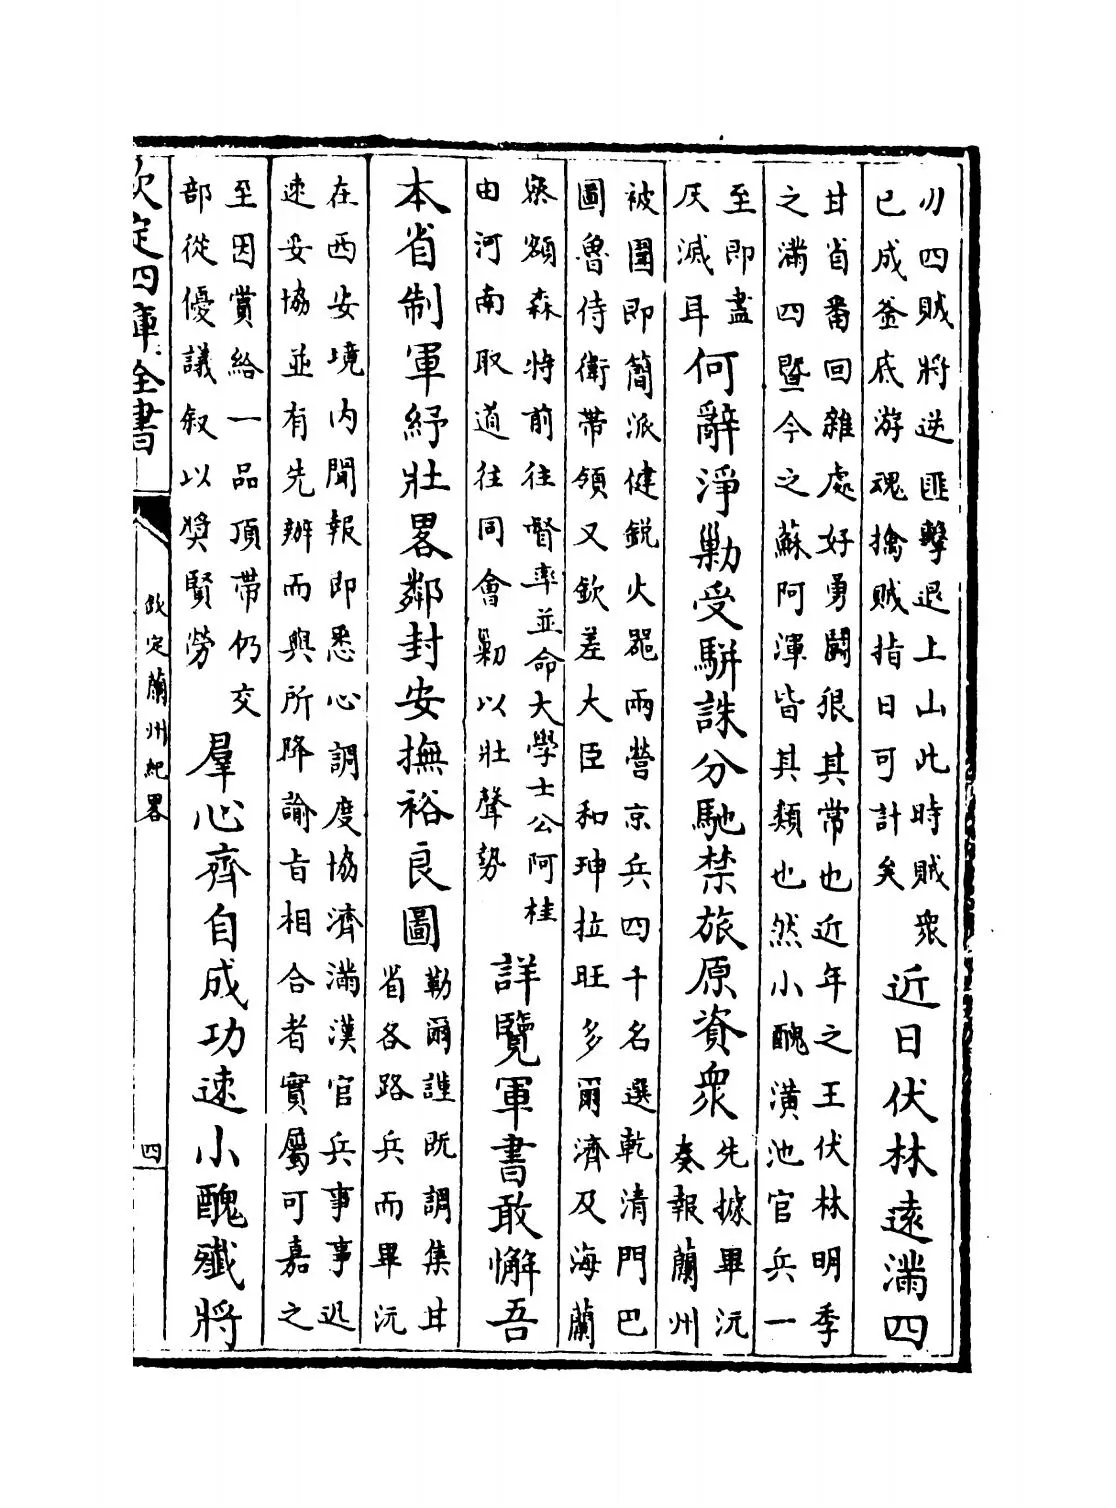 川四賊將逆匪擊退上山此時賊衆
已成釜底游魂擒賊指日可計矣
近日伏林遠滿四
甘省番回雜處好勇鬭狠其常也近年之王伏林明季
之滿四暨今之蘇阿渾皆其類也然小醜潢池官兵一
至即盡
灰滅耳
何辭淨勦受駢誅分馳禁旅原資衆
先據畢沅
奏報蘭州
被圍即簡派健銳火器兩營京兵四千名選乾清門巴
圖魯侍衛帶領又欽差大臣和珅拉旺多爾濟及海蘭
察額森將前往督率並命大學士公阿桂
由河南取道往同會勦以壯聲勢
詳覽軍書敢懈吾
本省制軍紓壯畧鄰封安撫裕良圖
勒爾謹既調集甘
省各路兵而畢沅
在西安境内聞報即悉心調度協濟滿漢官兵事事迅
速妥協並有先辦而與所降諭旨相合者實屬可嘉之
至因賞給一品頂帶仍交
部從優議叙以獎賢勞
羣心齊自成功速小醜殲將
欽定四庫全書
欽定蘭州紀畧
四